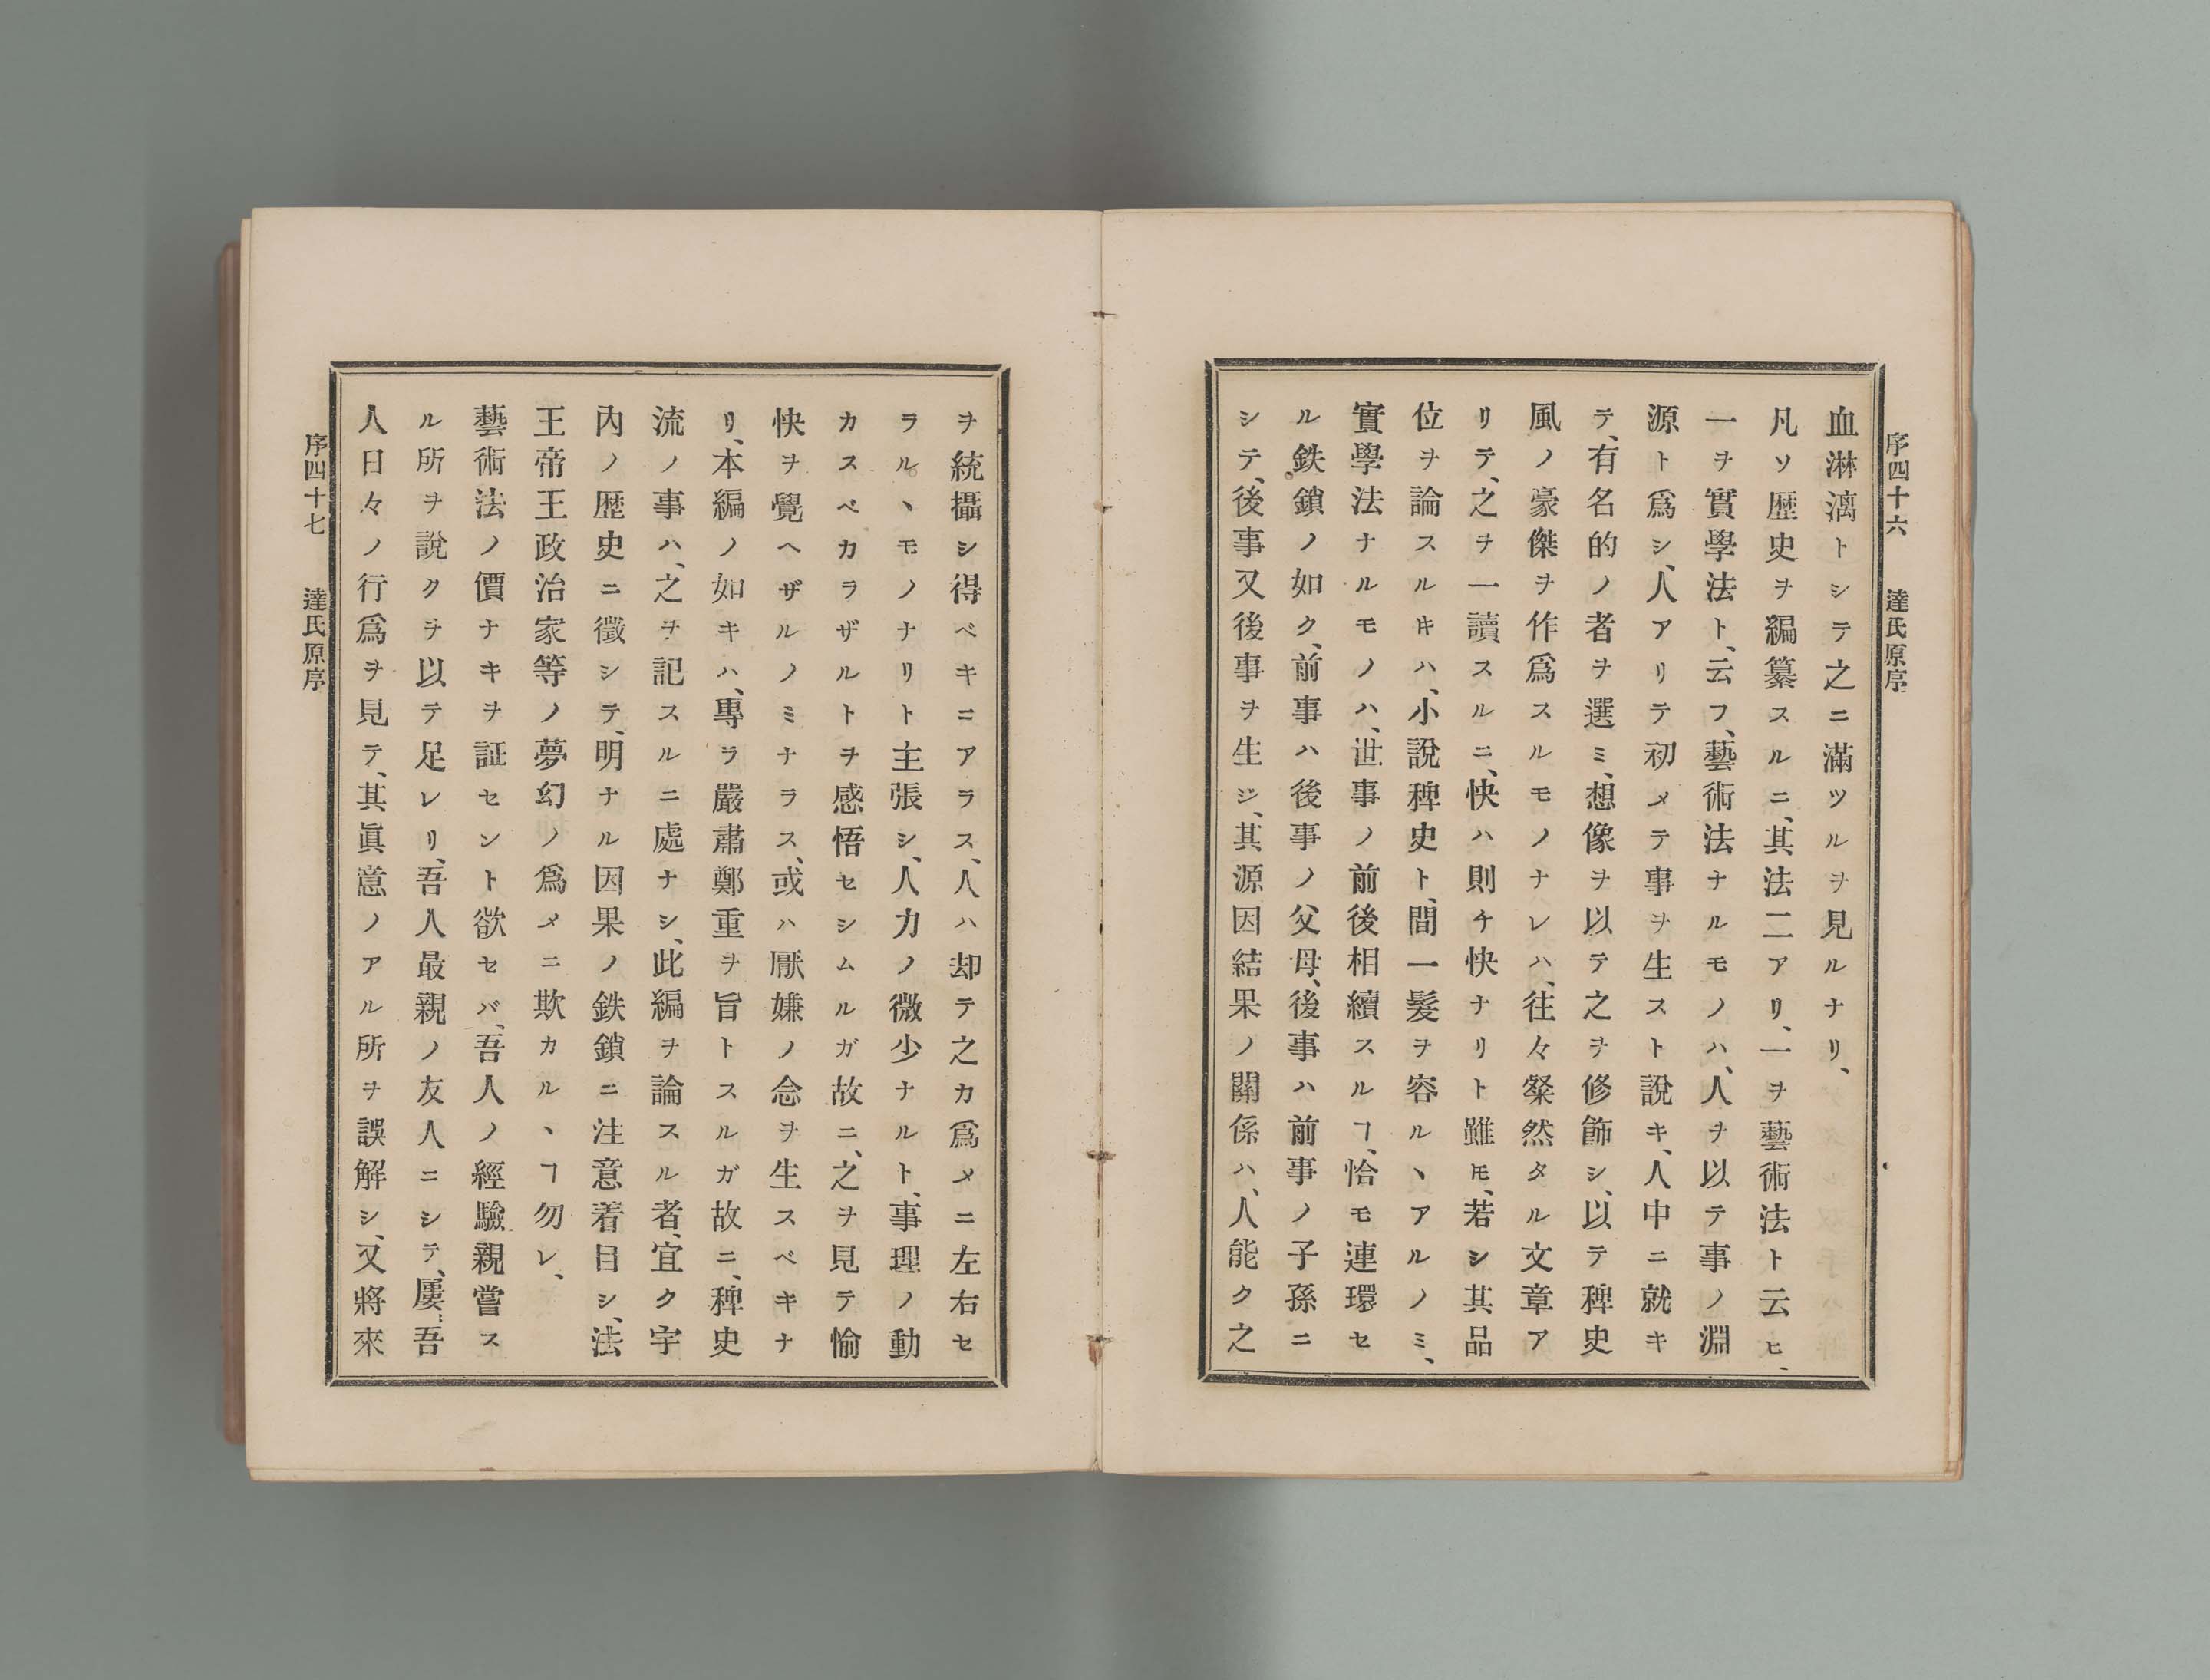 序四十六　達氏原序
血淋漓トシテ之ニ滿ツルヲ見ルナリ、
凡ソ歴史ヲ編纂スルニ、其法二アリ、一ヲ藝術法ト云ヒ、
一ヲ實學法ト、云フ、藝術法ナルモノハ、人ヲ以テ事ノ淵
源ト爲シ、人アリテ初メテ事ヲ生スト說キ、人中ニ就キ
テ、有名的ノ者ヲ選ミ、想像ヲ以テ之ヲ修飾シ、以テ稗史
風ノ豪傑ヲ作爲スルモノナレハ、往々粲然タル文章ア
リテ、之ヲ一讀スルニ、快ハ則チ快ナリト雖モ、若シ其品
位ヲ論スルキハ、小說稗史ト、間一髮ヲ容ルヽアルノミ、
實學法ナルモノハ、世事ノ前後相續スルヿ、恰モ連環セ
ル鉄鎖ノ如ク、前事ハ後事ノ父母、後事ハ前事ノ子孫ニ
シテ、後事又後事ヲ生ジ、其源因結果ノ關係ハ、人能ク之
ヲ統攝シ得ベキニアラス、人ハ却テ之カ爲メニ左右セ
ラルヽモノナリト主張シ、人力ノ微少ナルト、事理ノ動
カスベカラザルトヲ感悟セシムルガ故ニ、之ヲ見テ愉
快ヲ覺ヘザルノミナラス、或ハ厭嫌ノ念ヲ生スベキナ
リ、本編ノ如キハ、專ラ嚴肅鄭重ヲ旨トスルガ故ニ、稗史
流ノ事ハ、之ヲ記スルニ處ナシ、此編ヲ論スル者、宜ク宇
內ノ歴史ニ徵シテ、明ナル因果ノ鉄鎖ニ注意着目シ、法
王帝王政治家等ノ夢幻ノ爲メニ欺カルヽヿ勿レ、
藝術法ノ價ナキヲ証セント欲セバ、吾人ノ經驗親嘗ス
ル所ヲ說クヲ以テ足レリ、吾人最親ノ友人ニシテ、屢吾
人日々ノ行爲ヲ見テ、其眞意ノアル所ヲ誤解シ、又將來
序四十七　達氏原序